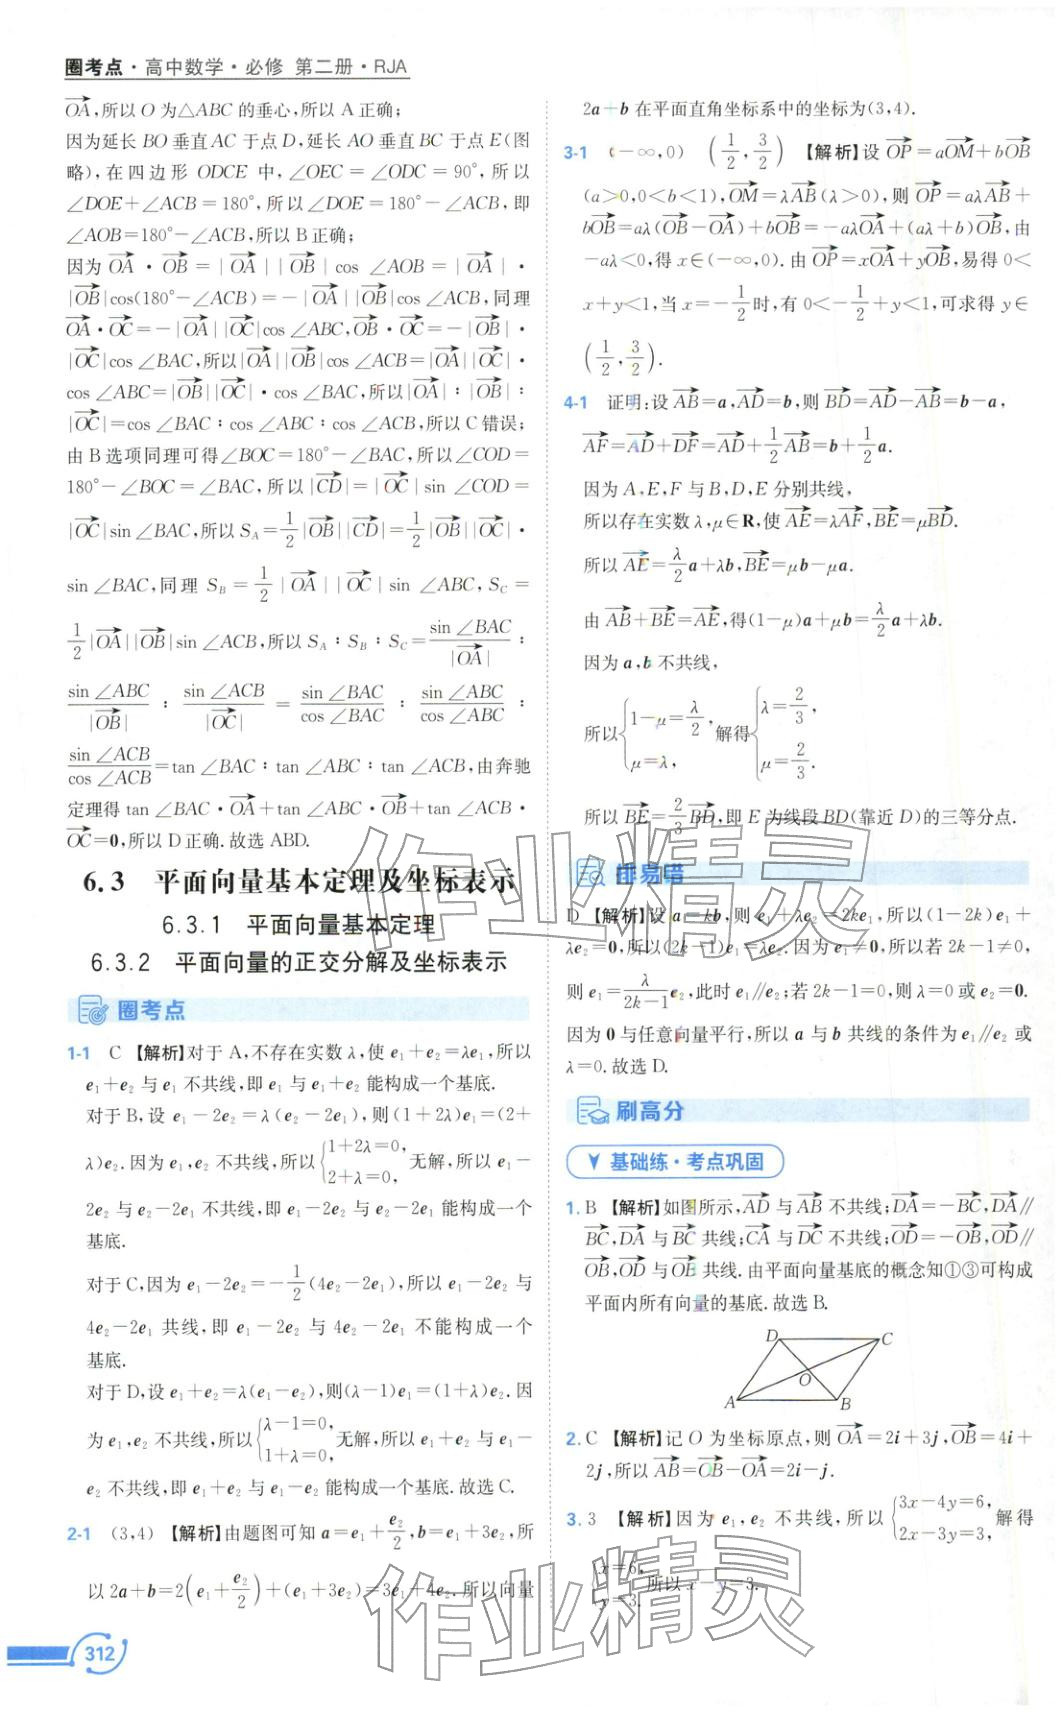 圈考点·高中数学·必修 第二册·RJA
$\overrightarrow{OA}$,所以 O 为△ABC 的垂心,所以 A 正确;
因为延长 BO 垂直 AC 于点 D,延长 AO 垂直 BC 于点 E(图
略),在四边形 ODCE 中,∠OEC=∠ODC=90°,所以
∠DOE+∠ACB=180°,所以∠DOE=180°-∠ACB,即
∠AOB=180°-∠ACB,所以 B 正确;
因为 $\overrightarrow{OA}$·$\overrightarrow{OB}$=|$\overrightarrow{OA}$||$\overrightarrow{OB}$|cos∠AOB=|$\overrightarrow{OA}$|·
|$\overrightarrow{OB}$|cos(180°-∠ACB)=-|$\overrightarrow{OA}$||$\overrightarrow{OB}$|cos∠ACB,同理
$\overrightarrow{OA}$·$\overrightarrow{OC}$=-|$\overrightarrow{OA}$||$\overrightarrow{OC}$|cos∠ABC,$\overrightarrow{OB}$·$\overrightarrow{OC}$=-|$\overrightarrow{OB}$|·
|$\overrightarrow{OC}$|cos∠BAC,所以|$\overrightarrow{OA}$||$\overrightarrow{OB}$|cos∠ACB=|$\overrightarrow{OA}$||$\overrightarrow{OC}$|·
cos∠ABC=|$\overrightarrow{OB}$||$\overrightarrow{OC}$|·cos∠BAC,所以|$\overrightarrow{OA}$|∶|$\overrightarrow{OB}$|∶
|$\overrightarrow{OC}$|=cos∠BAC∶cos∠ABC∶cos∠ACB,所以 C 错误;
由 B 选项同理可得∠BOC=180°-∠BAC,所以∠COD=
180°-∠BOC=∠BAC,所以|$\overrightarrow{CD}$|=|$\overrightarrow{OC}$|sin∠COD=
|$\overrightarrow{OC}$|sin∠BAC,所以 $S_A=\frac{1}{2}$|$\overrightarrow{OB}$||$\overrightarrow{CD}$|=$\frac{1}{2}$|$\overrightarrow{OB}$||$\overrightarrow{OC}$|·
sin∠BAC,同理 $S_B=\frac{1}{2}$|$\overrightarrow{OA}$||$\overrightarrow{OC}$|sin∠ABC,$S_C=$
$\frac{1}{2}$|$\overrightarrow{OA}$||$\overrightarrow{OB}$|sin∠ACB,所以 $S_A∶S_B∶S_C=\frac{\sin∠BAC}{|\overrightarrow{OA}|}$∶
$\frac{\sin∠ABC}{|\overrightarrow{OB}|}∶\frac{\sin∠ACB}{|\overrightarrow{OC}|}=\frac{\sin∠BAC}{\cos∠BAC}∶\frac{\sin∠ABC}{\cos∠ABC}$∶
$\frac{\sin∠ACB}{\cos∠ACB}$=tan∠BAC∶tan∠ABC∶tan∠ACB,由奔驰
定理得 tan∠BAC·$\overrightarrow{OA}$+tan∠ABC·$\overrightarrow{OB}$+tan∠ACB·
$\overrightarrow{OC}$=0,所以 D 正确.故选 ABD.
6.3 平面向量基本定理及坐标表示
6.3.1 平面向量基本定理
6.3.2 平面向量的正交分解及坐标表示
圈考点
1-1 C 【解析】对于 A,不存在实数 λ,使 e₁+e₂=λe₁,所以
e₁+e₂ 与 e₁ 不共线,即 e₁ 与 e₁+e₂ 能构成一个基底.
对于 B,设 e₁-2e₂=λ(e₂-2e₁),则(1+2λ)e₁=(2+
λ)e₂.因为 e₁,e₂ 不共线,所以$\begin{cases}1+2λ=0,\\2+λ=0,\end{cases}$无解,所以 e₁-
2e₂ 与 e₂-2e₁ 不共线,即 e₁-2e₂ 与 e₂-2e₁ 能构成一个
基底.
对于 C,因为 e₁-2e₂=-$\frac{1}{2}$(4e₂-2e₁),所以 e₁-2e₂ 与
4e₂-2e₁ 共线,即 e₁-2e₂ 与 4e₂-2e₁ 不能构成一个
基底.
对于 D,设 e₁+e₂=λ(e₁-e₂),则(λ-1)e₁=(1+λ)e₂.因
为 e₁,e₂ 不共线,所以$\begin{cases}λ-1=0,\\1+λ=0,\end{cases}$无解,所以 e₁+e₂ 与 e₁-
e₂ 不共线,即 e₁+e₂ 与 e₁-e₂ 能构成一个基底.故选 C.
2-1 (3,4) 【解析】由题图可知 a=e₁+$\frac{e_2}{2}$,b=e₁+3e₂,所
以 2a+b=2$\left(e_1+\frac{e_2}{2}\right)$+(e₁+3e₂)=3e₁+4e₂.所以向量
312
2a+b 在平面直角坐标系中的坐标为(3,4).
3-1 (-∞,0) $\left(\frac{1}{2},\frac{3}{2}\right)$ 【解析】设 $\overrightarrow{OP}$=a$\overrightarrow{OM}$+b$\overrightarrow{OB}$
(a>0,0<b<1),$\overrightarrow{OM}$=λ$\overrightarrow{AB}$(λ>0),则 $\overrightarrow{OP}$=aλ$\overrightarrow{AB}$+
b$\overrightarrow{OB}$=aλ($\overrightarrow{OB}$-$\overrightarrow{OA}$)+b$\overrightarrow{OB}$=-aλ$\overrightarrow{OA}$+(aλ+b)$\overrightarrow{OB}$,由
-aλ<0,得 x∈(-∞,0).由 $\overrightarrow{OP}$=x$\overrightarrow{OA}$+y$\overrightarrow{OB}$,易得 0<
x+y<1,当 x=-$\frac{1}{2}$时,有 0<-$\frac{1}{2}$+y<1,可求得 y∈
$\left(\frac{1}{2},\frac{3}{2}\right)$.
4-1 证明:设 $\overrightarrow{AB}$=a,$\overrightarrow{AD}$=b,则 $\overrightarrow{BD}$=$\overrightarrow{AD}$-$\overrightarrow{AB}$=b-a,
$\overrightarrow{AF}$=$\overrightarrow{AD}$+$\overrightarrow{DF}$=$\overrightarrow{AD}$+$\frac{1}{2}\overrightarrow{AB}$=b+$\frac{1}{2}$a.
因为 A,E,F 与 B,D,E 分别共线,
所以存在实数 λ,μ∈R,使 $\overrightarrow{AE}$=λ$\overrightarrow{AF}$,$\overrightarrow{BE}$=μ$\overrightarrow{BD}$.
所以 $\overrightarrow{AE}$=$\frac{λ}{2}$a+λb,$\overrightarrow{BE}$=μb-μa.
由 $\overrightarrow{AB}$+$\overrightarrow{BE}$=$\overrightarrow{AE}$,得(1-μ)a+μb=$\frac{λ}{2}$a+λb.
因为 a,b 不共线,
所以$\begin{cases}1-μ=\frac{λ}{2},\\μ=λ,\end{cases}$解得$\begin{cases}λ=\frac{2}{3},\\μ=\frac{2}{3}.\end{cases}$
所以 $\overrightarrow{BE}$=$\frac{2}{3}\overrightarrow{BD}$,即 E 为线段 BD(靠近 D)的三等分点.
排易错
D 【解析】设 a=kb,则 e₁+λe₂=2ke₁,所以(1-2k)e₁+
λe₂=0,所以(2k-1)e₁=λe₂.因为 e₁≠0,所以若 2k-1≠0,
则 e₁=$\frac{λ}{2k-1}$e₂,此时 e₁∥e₂;若 2k-1=0,则 λ=0 或 e₂=0.
因为 0 与任意向量平行,所以 a 与 b 共线的条件为 e₁∥e₂ 或
λ=0.故选 D.
刷高分
基础练·考点巩固
1. B 【解析】如图所示,$\overrightarrow{AD}$ 与 $\overrightarrow{AB}$ 不共线;$\overrightarrow{DA}$=-$\overrightarrow{BC}$,$\overrightarrow{DA}$∥
$\overrightarrow{BC}$,$\overrightarrow{DA}$ 与 $\overrightarrow{BC}$ 共线;$\overrightarrow{CA}$ 与 $\overrightarrow{DC}$ 不共线;$\overrightarrow{OD}$=-$\overrightarrow{OB}$,$\overrightarrow{OD}$∥
$\overrightarrow{OB}$,$\overrightarrow{OD}$ 与 $\overrightarrow{OB}$ 共线.由平面向量基底的概念知①③可构成
平面内所有向量的基底.故选 B.
D C
O
A B
2. C 【解析】记 O 为坐标原点,则 $\overrightarrow{OA}$=2i+3j,$\overrightarrow{OB}$=4i+
2j,所以 $\overrightarrow{AB}$=$\overrightarrow{OB}$-$\overrightarrow{OA}$=2i-j.
3. 3 【解析】因为 e₁,e₂ 不共线,所以$\begin{cases}3x-4y=6,\\2x-3y=3,\end{cases}$解得
$\begin{cases}x=6,\\y=3.\end{cases}$所以 x-y=3.
作业精灵
作业精灵